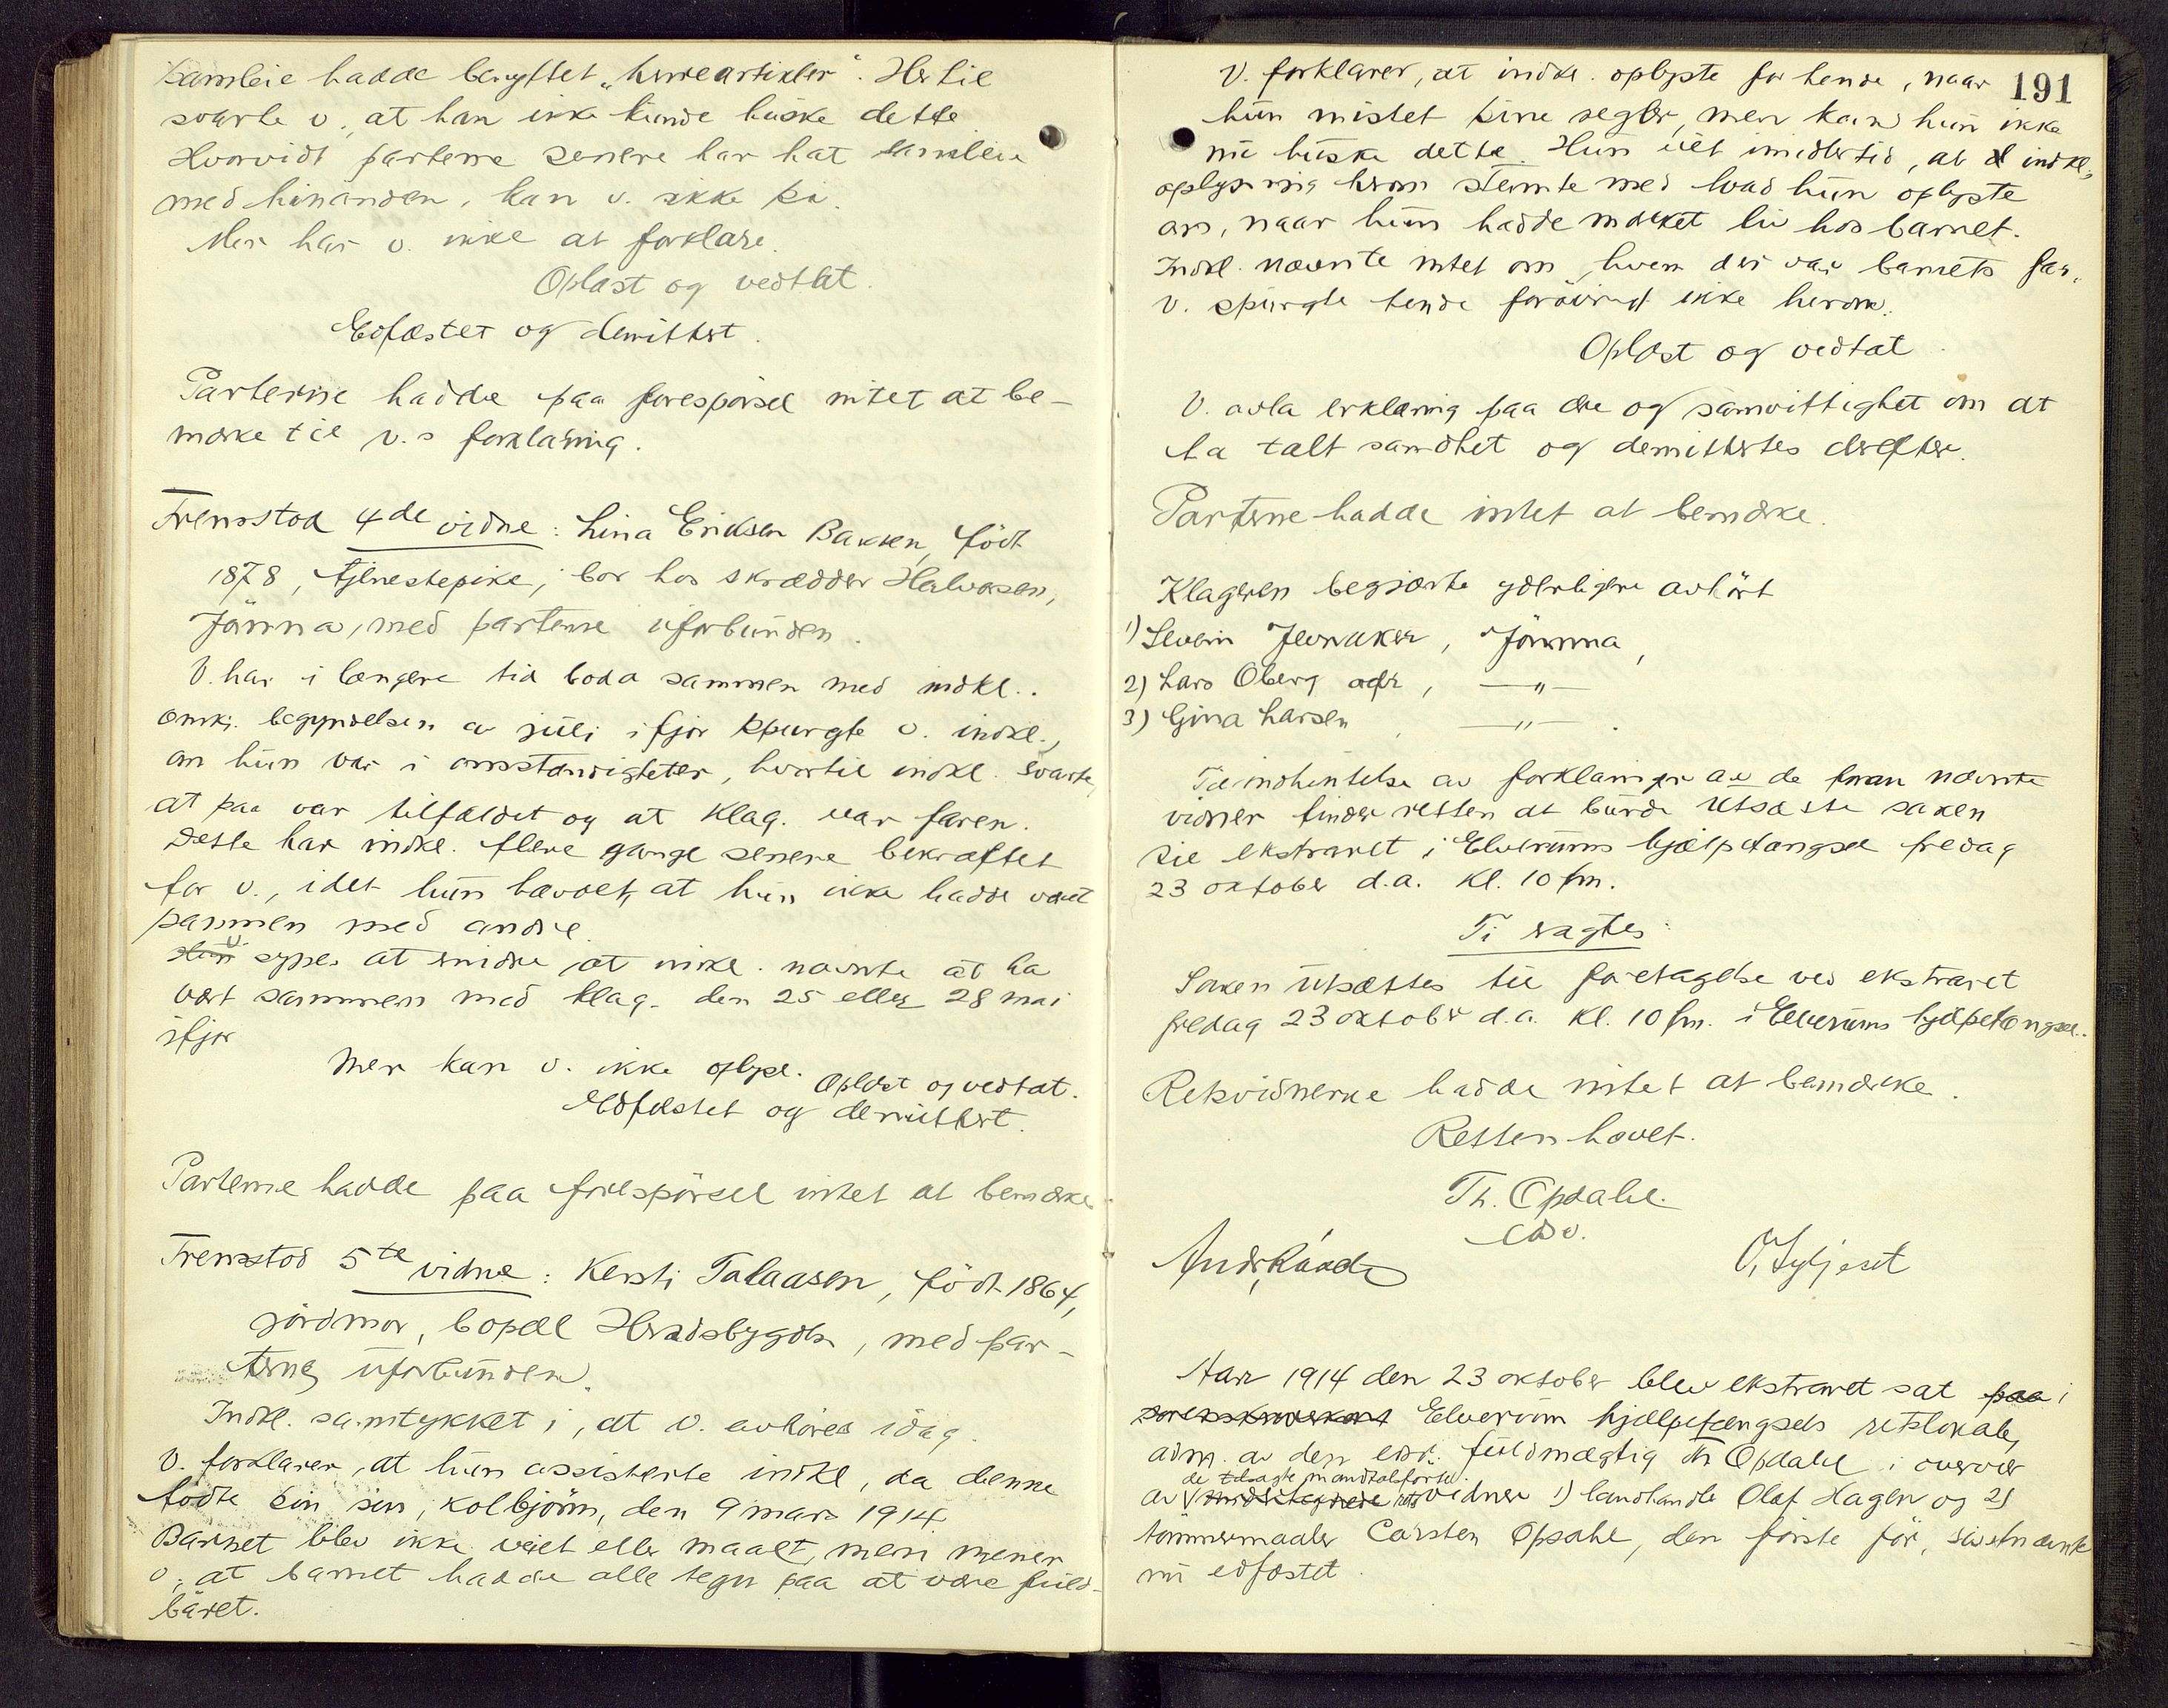 samleie hadde benyttet "herreartikler". Hertil
svarte v., at han ikke kunde huske dette
Hvorvidt parterne senere har hat samleie
med hinanden, kan v. ikke si.
Mer har v. ikke at forklare.
Oplæst og vedtat.
Edfæstet og demittert.
Parterne hadde paa forespørsel intet at be-
merke til v.s forklaring.
Fremstod 4de vidne: Lina Eriksen Bakken, født
1878, tjenestepike, bor hos skrædder Halvorsen,
Jømna, med parterne uforbunden.
V. har i længere tid bodd sammen med indkl..
Omkr. begyndelsen av juli ifjor spurgte v. indkl.,
om hun var i omstændigheter, hvortil indkl. svarte,
at saa var tilfældet og at klag. var faren.
Dette har indkl. flere gange senere bekræftet
for v., idet hun hævdet, at hun ikke hadde været
sammen med andre.
Hun v. synes at mindre, at inkl. nævnte at ha
vært sammen med klag. den 25 eller 28 mai
ifjor
Mer kan v. ikke oplyse. Oplæst og vedtat.
Edfæstet og demittert.
Parterne hadde paa forespørsel intet at bemerke.
Fremstod 5te vidne: Kersti Talaasen, født 1864,
jordmor, bopæl Heradsbygden, med par-
terne uforbunden.
Indkl. samtykket i, at v. avhøres idag.
V. forklarer, at hun assisterte indkl, da denne
fødte sin søn, Kolbjørn, den 9 mars 1914.
Barnet blev ikke veiet eller maalt, men mener
v., at barnet hadde alle tegn paa at være fuld-
båret.
191
V. forklarer, at indkl. oplyste for hende, naar
hun mistet sine regler, men kan hun ikke
nu huske dette. Hun vet imidlertid, at indkl.s
oplysning herom stemte med hvad hun oplyste
om, naar hun hadde merket liv hos barnet.
Indkl. nævnte intet om, hvem der var barnets far.
V. spurgte hende forøvrigt ikke herom.
Oplæst og vedtat.
V. avla erklæring paa ære og samvittighet om at
ha talt sandhet og demittertes derefter.
Parterne hadde intet at bemerke.
Klageren begjærte yderligere avhørt
1) Severin Jevnaker, Jømna,
2) Lars Øberg , —"—
3) Gina Larsen , —"— .
Til indhentelse av forklaringer av de foran nævnte
vidner finder retten at burde utsætte saken
til ekstraret i Elverums hjelpefængsel fredag
23 oktober d.a. kl. 10 fm.
Ti eragtes:
Saken utsættes til foretagelse ved ekstraret
fredag 23 oktober d.a. kl. 10 fm. i Elverums hjælpefængsel.
Retsvidnerne hadde intet at bemerke.
Retten hævet.
Th. Opdahl
edsv.
Aar 1914 den 23 oktober blev ekstraret sat paa i
sorenskriverkont Elverum hjelpefængsels retslokale,
adm. av den edsv. fuldmægtig Th Opdahl i overvær
de tilsagte mandtalsførte
av undertegnede retsvidner 1) landhandler Olaf Hagen og 2)
tømmermaaler Carsten Opsahl, den første før, sistnævnte
nu edfæstet.